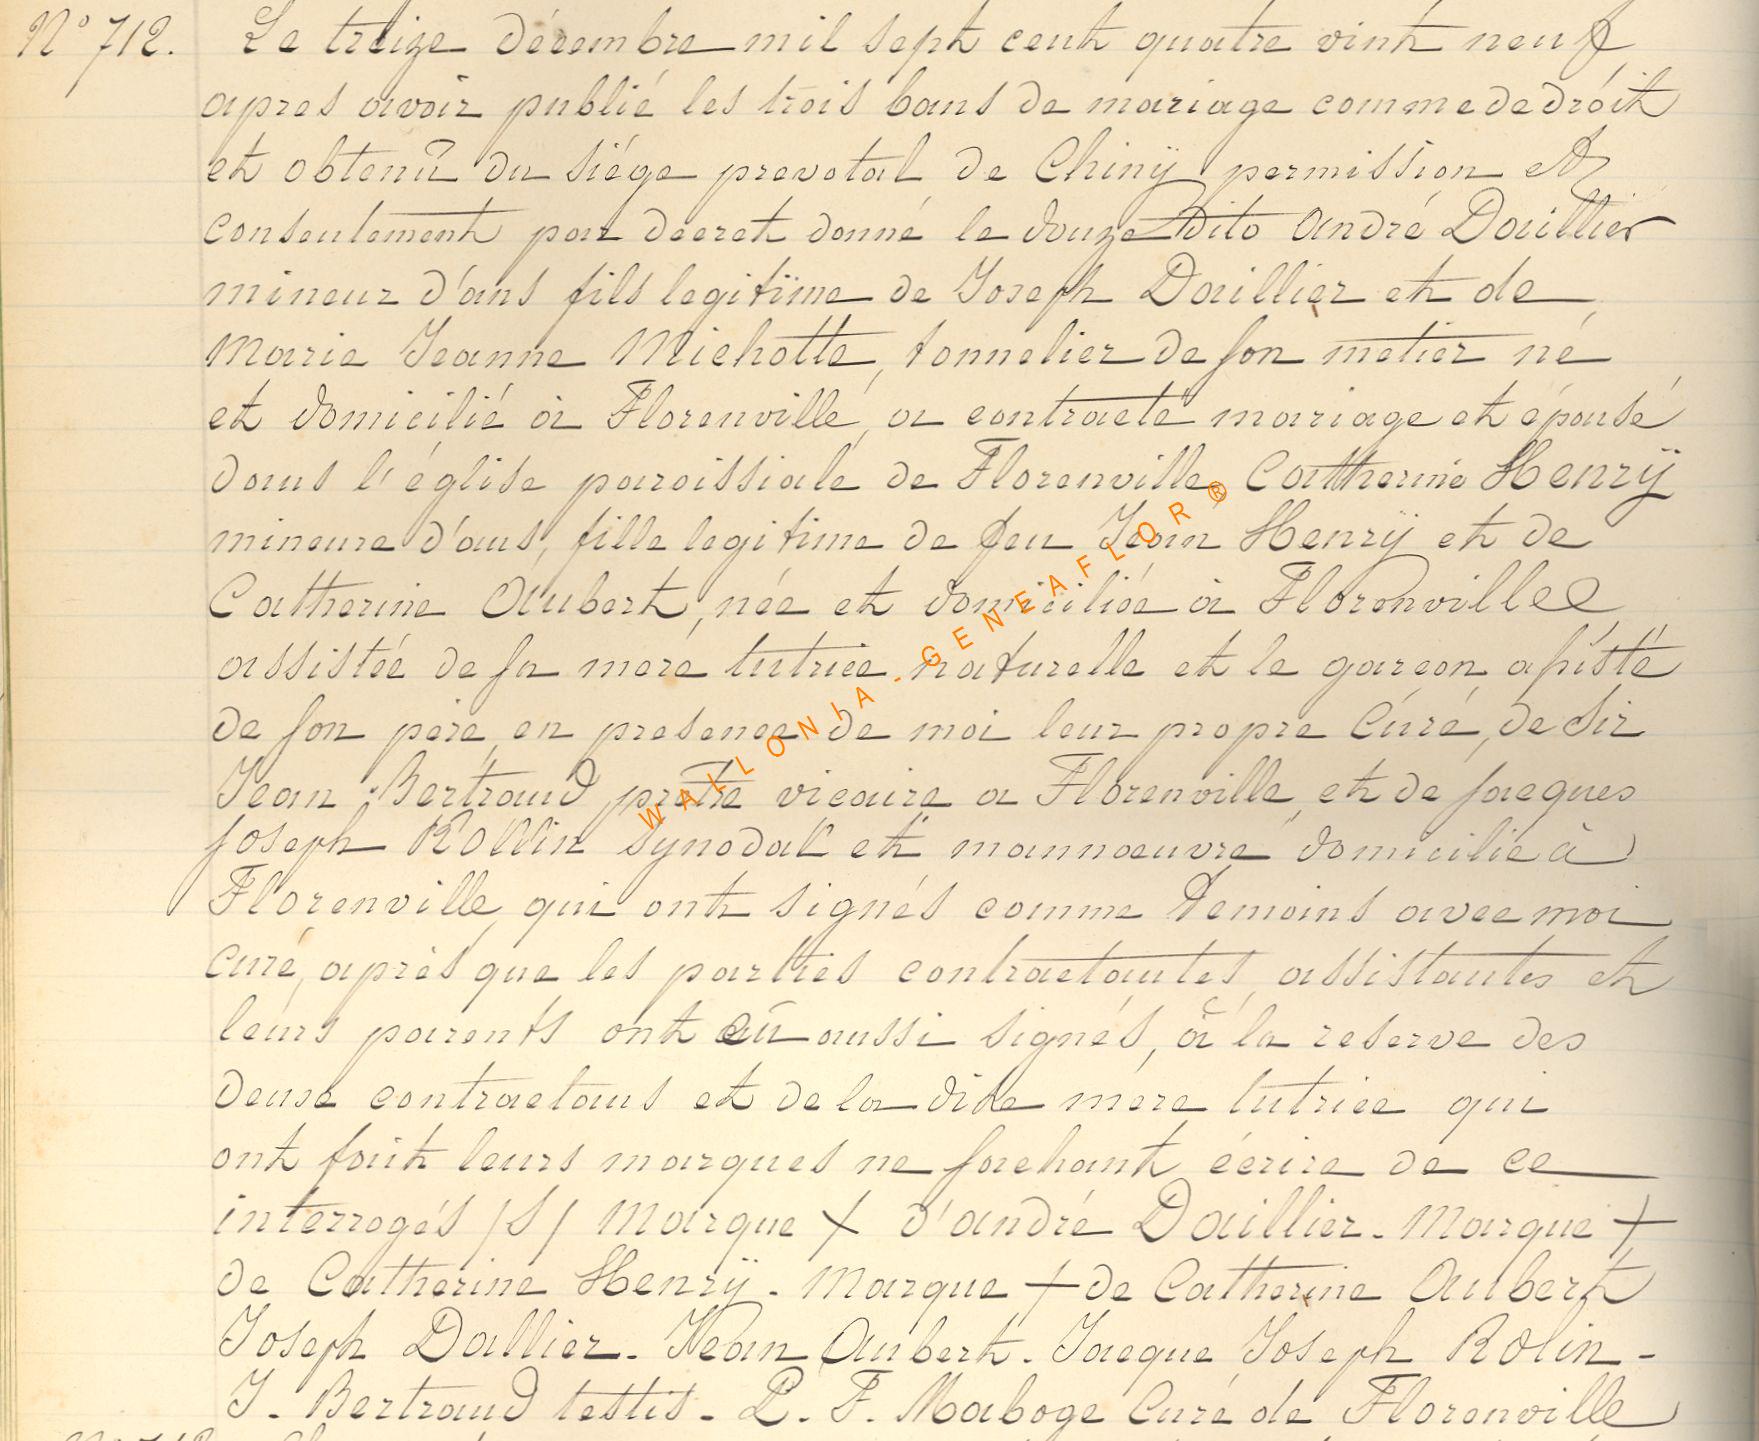 N° 712. Le treize décembre mil sept cent quatre vint neuf
apres avoir publié les trois bans de mariage comme de droit
et obtenu du siége prevotal de Chinÿ permission et
consentement par decret donné le douze dito andré Daillier
mineur d'ans fils legitime de Joseph Daillier et de
Marie Jeanne Michotte, tonnelier de son metier né
et domicilié à Florenville, a contracté mariage et épousé
dans l'église paroissiale de Florenville Catherine Henrÿ
mineure d'ans, fille legitime de feu Jean Henrÿ et de
Catherine Aubert, née et domiciliée à Florenville
assistée de sa mere tutrice naturelle et le garcon assisté
de son père, en presence de moi leur propre Curé, de Sir
Jean Bertrand pretre vicaire a Florenville, et de jacques
joseph Rollin synodal et mannœuvre domicilié à
Florenville, qui ont signés comme temoins avec moi
curé, après que les parties contractantes, assistantes et
leurs parents ont eû aussi signés, à la reserve des
deux contractans et de la dite mere tutrice qui
ont fait leurs marques ne sachant écrire de ce
interrogés /S/ Marque + d'andré Daillier - Marque +
de Catherine Henrÿ - Marque + de Catherine Aubert
Joseph Dallier - Jean Aubert - Jacque Joseph Rolin -
J. Bertrand testis - P. F. Maboge Curé de Florenville
WALLONIA - GENEAFLOR®